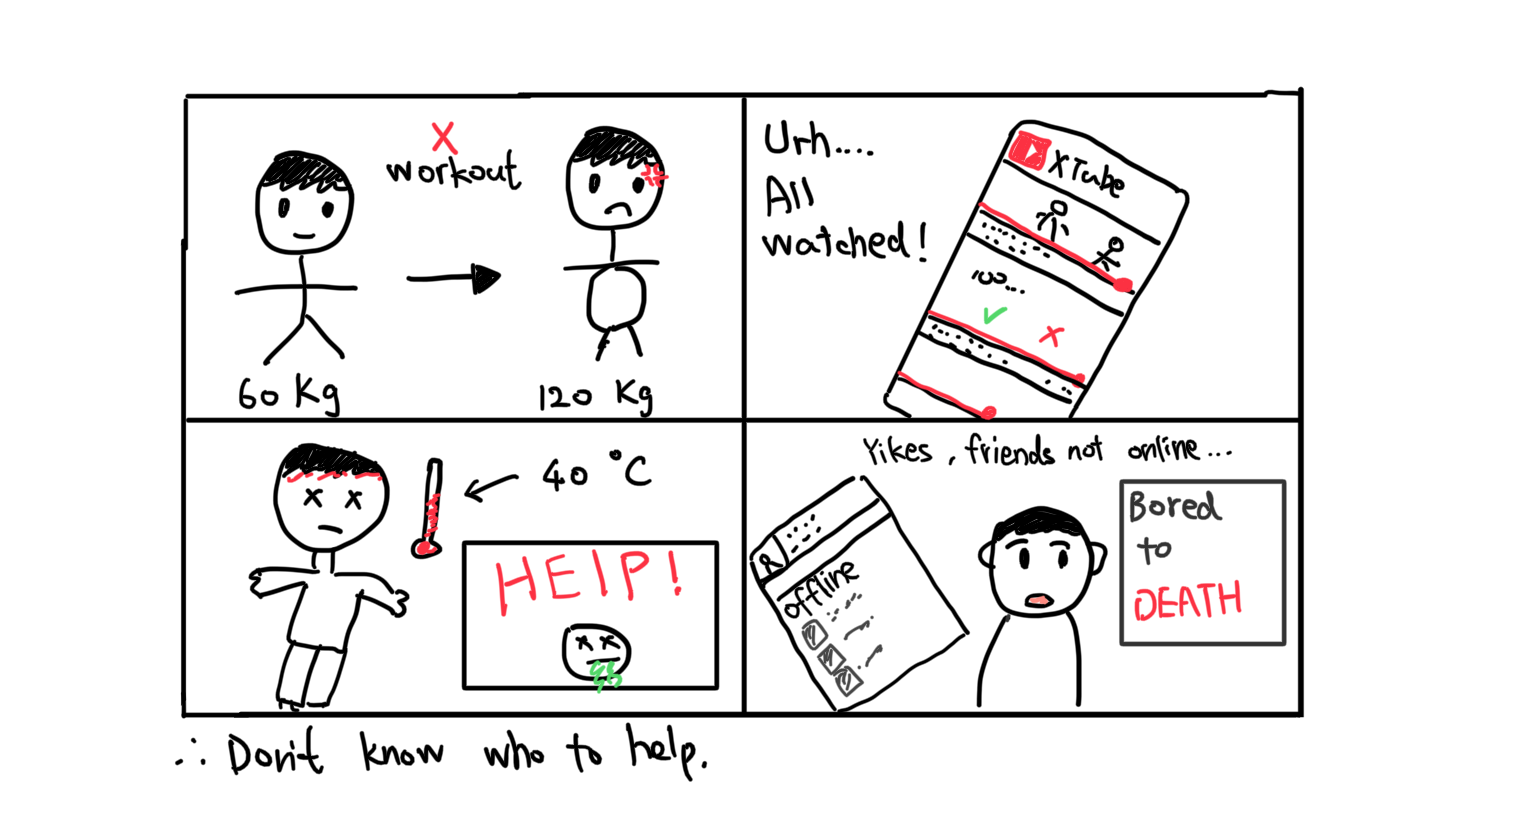 X
workout
60 Kg
120 Kg
Urh....
All
watched!
XTube
100...
40 °C
HELP!
Yikes, friends not online...
offline
Bored
to
DEATH
∴ Don't know who to help.